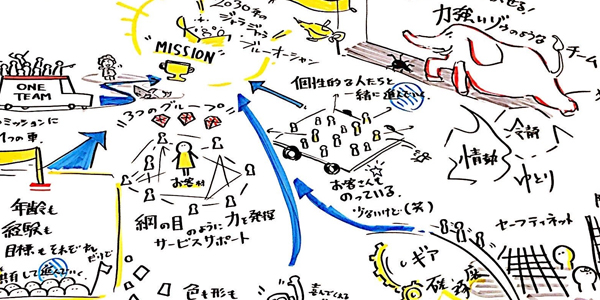 2030年の
ジャラジャラ
ブルーオーシャン
MISSION
ONE
TEAM
ミッションに
1つの車。
3つのグループ
お客様
網の目のように力を発揮
サービスサポート
個性的な人たちと
一緒に進んでいく
お客さんも
のっている。
少ないけど(笑)
力強いゾウのような
チーム
冷静
情熱
ゆとり
セーフティネット
ギア
年齢も
経験も
目標もそれぞれ
だけど
進んでいく
色も形も
喜んでくれる